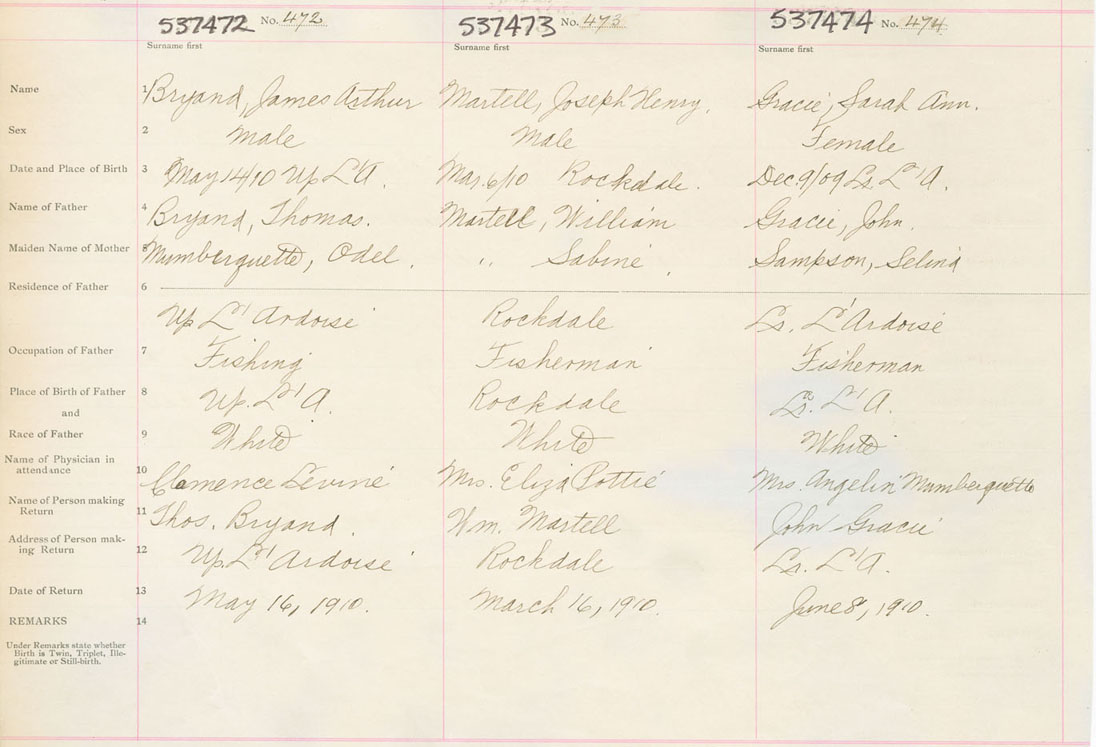 537472 No. 472 537473 No. 473 537474 No. 474
Surname first Surname first Surname first
Name 1 Bryand, James Arthur Martell, Joseph Henry, Gracie, Sarah Ann.
Sex 2 Male Male Female
Date and Place of Birth 3 May 14/10 Up L'A. Mar. 6/10 Rockdale. Dec. 9/09 Lr. L'A.
Name of Father 4 Bryand, Thomas. Martell, William Gracie, John.
Maiden Name of Mother 5 Mumberquette, Odel. " Sabine, Sampson, Selina
Residence of Father 6
Up L'Ardoise Rockdale Lr. L'Ardoise
Occupation of Father 7 Fishing Fisherman Fisherman
Place of Birth of Father 8 Up. L'A. Rockdale Lr. L'A.
and
Race of Father 9 White White White
Name of Physician in
attendance 10 Clemence Levine Mrs. Eliza Pottie Mrs. Angelin Mumberquette
Name of Person making
Return 11 Thos. Bryand Wm. Martell John Gracie
Address of Person mak-
ing Return 12 Up. L'Ardoise Rockdale Lr. L'A.
Date of Return 13 May 16, 1910. March 16, 1910. June 8, 1910.
REMARKS 14
Under Remarks state whether
Birth is Twin, Triplet, Ille-
gitimate or Still-birth.